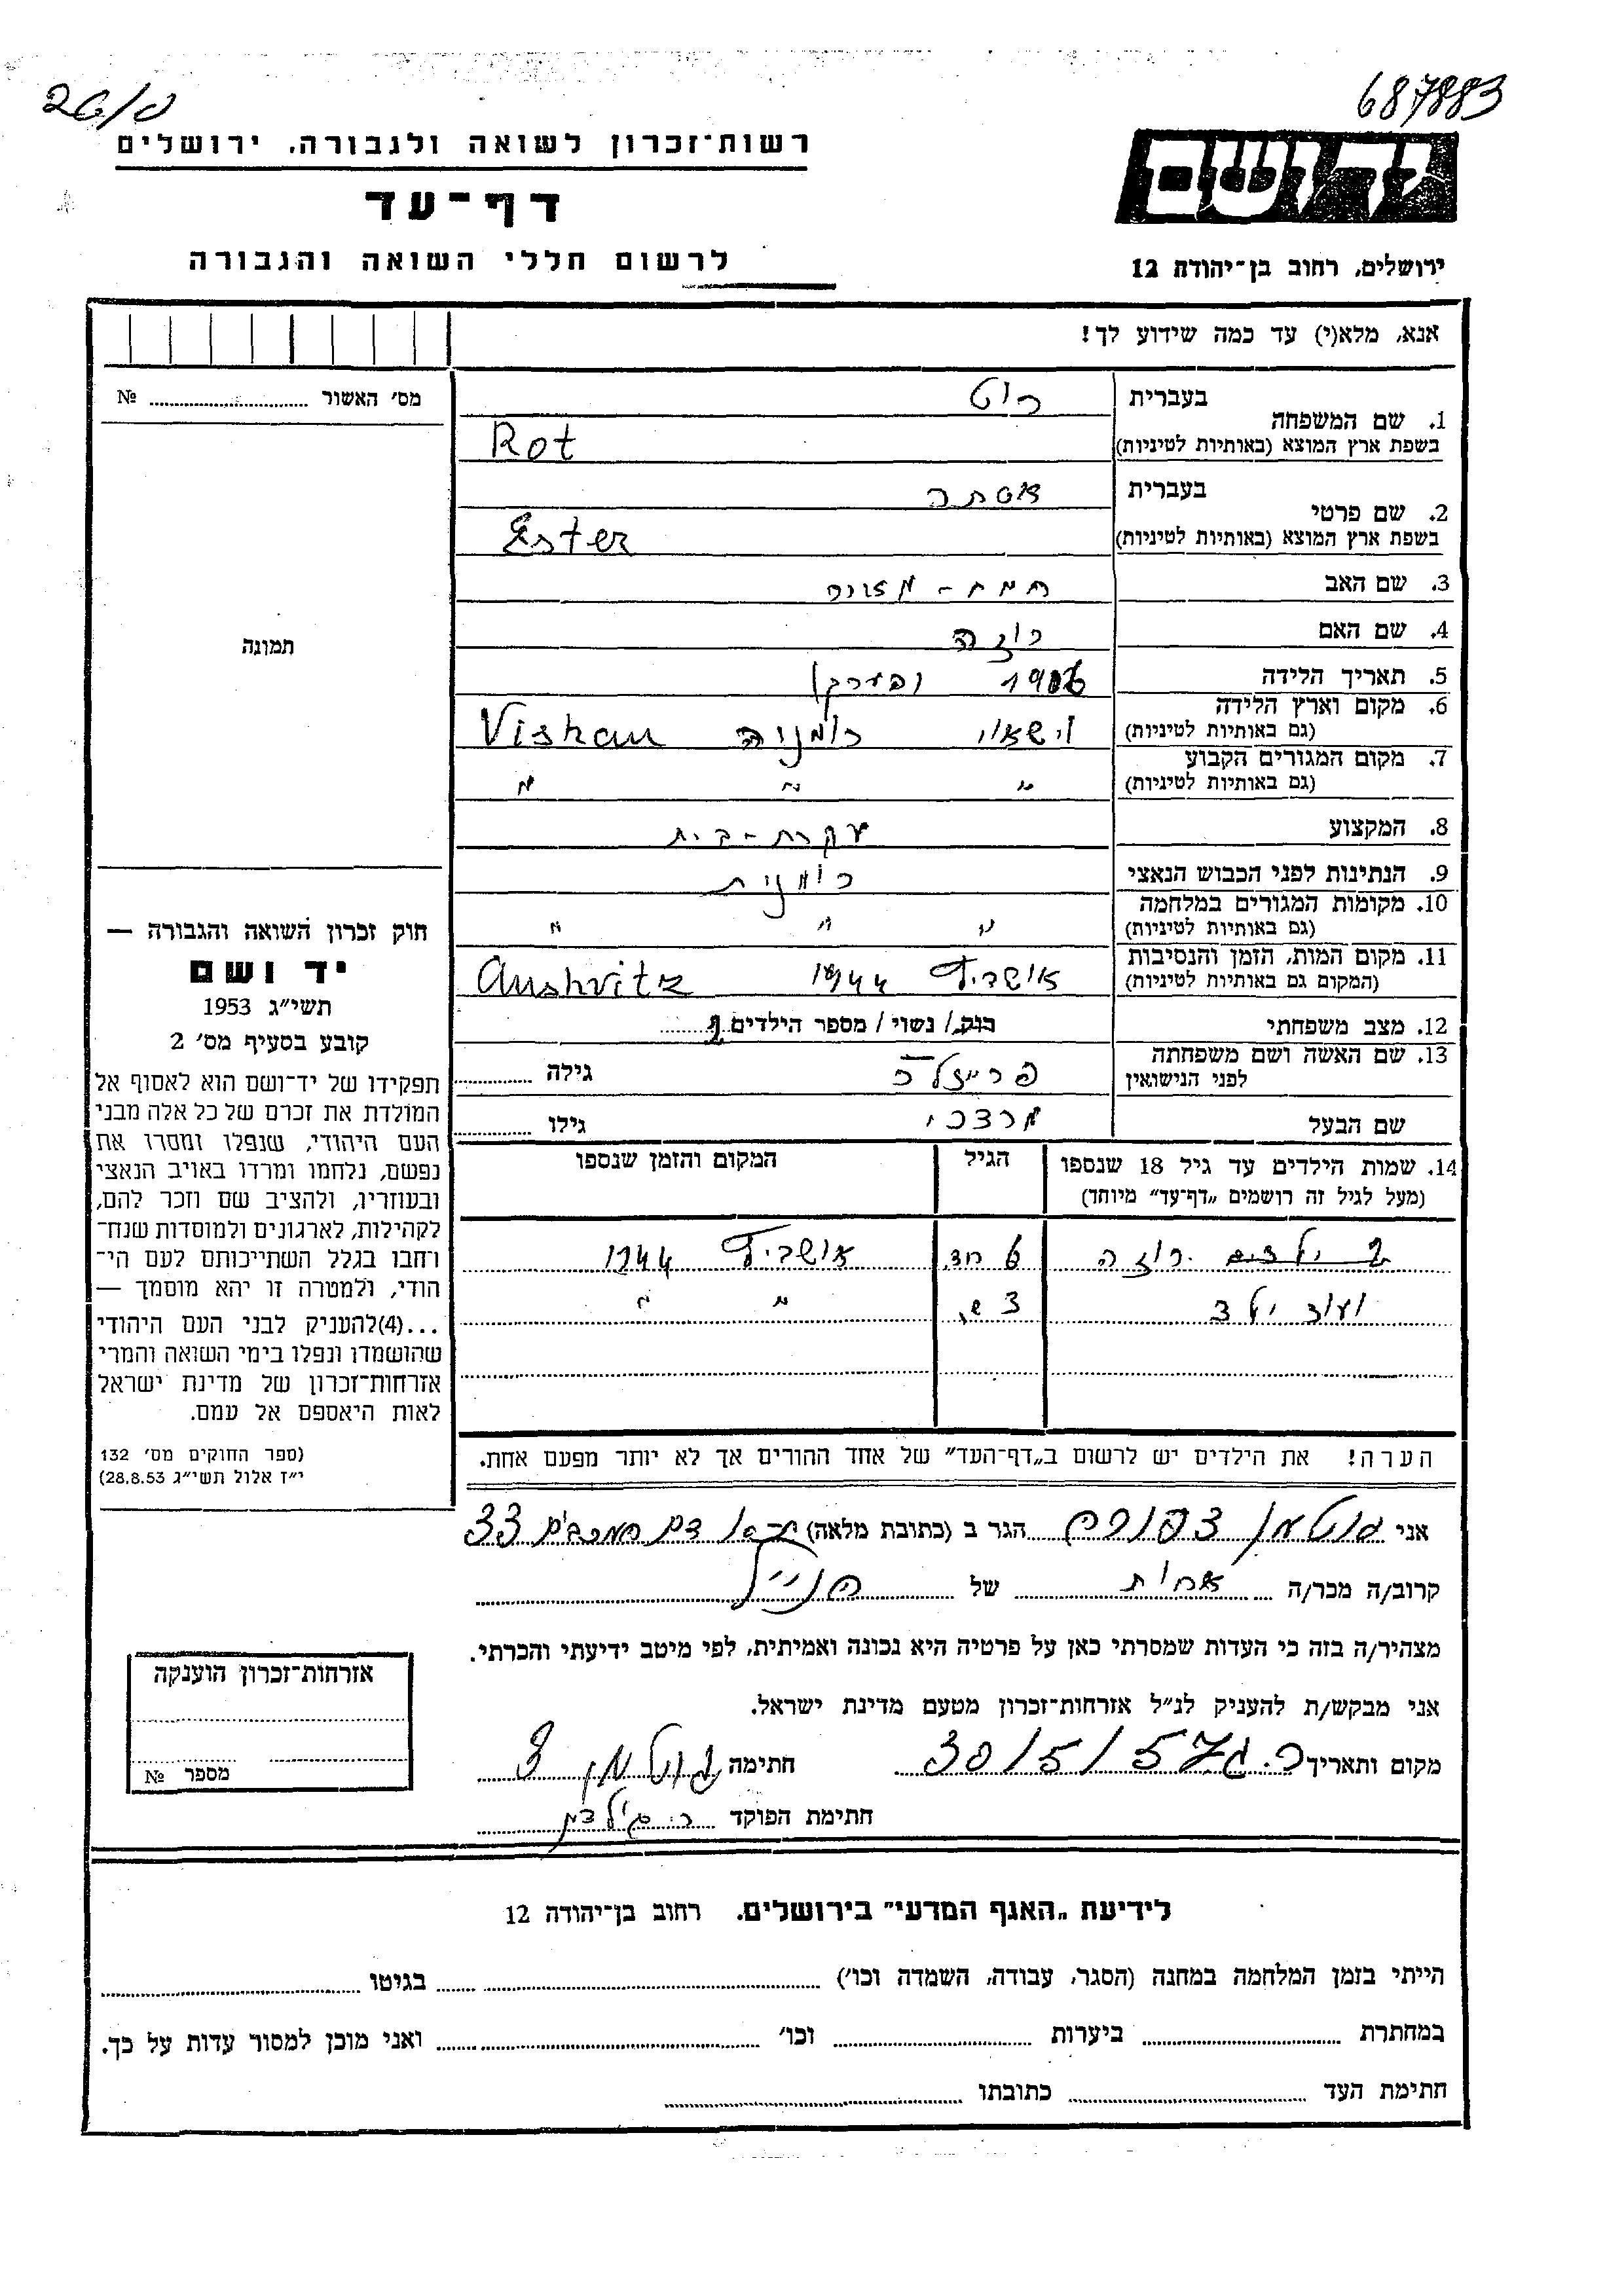 687883
26/ס
רשות־זכרון לשואה ולגבורה, ירושלים
יד ושם
דף־עד
לרשום חללי השואה והגבורה
ירושלים, רחוב בן־יהודה 12
אנא, מלא(י) עד כמה שידוע לך!
מס׳ האשור № 
1. שם המשפחה
בעברית רוט
בשפת ארץ המוצא (באותיות לטיניות) Rot
2. שם פרטי
בעברית אסתר
בשפת ארץ המוצא (באותיות לטיניות) Ester
3. שם האב
4. שם האם רוזה
תמונה
5. תאריך הלידה 1906 (בערך)
6. מקום וארץ הלידה
(גם באותיות לטיניות) וישאו רומניה Vishau
7. מקום המגורים הקבוע
(גם באותיות לטיניות) " " "
8. המקצוע עקרת-בית
9. הנתינות לפני הכבוש הנאצי רומנית
10. מקומות המגורים במלחמה
(גם באותיות לטיניות) " " "
11. מקום המות, הזמן והנסיבות
(המקום גם באותיות לטיניות) אושביץ 1944 Aushvitz
12. מצב משפחתי רוק/ נשוי/ מספר הילדים 2
13. שם האשה ושם משפחתה
לפני הנישואין גילה
שם הבעל מרדכי גילו
14. שמות הילדים עד גיל 18 שנספו
(מעל לגיל זה רושמים „דף־עד״ מיוחד)
הגיל
המקום והזמן שנספו
2 ילדים רוזה 6 חד. אושביץ 1944
ועוד ילד 3 ש. " "
הערה! את הילדים יש לרשום ב„דף־העד״ של אחד ההורים אך לא יותר מפעם אחת.
חוק זכרון השואה והגבורה —
יד ושם
תשי״ג 1953
קובע בסעיף מס׳ 2
תפקידו של יד־ושם הוא לאסוף אל
המולדת את זכרם של כל אלה מבני
העם היהודי, שנפלו ומסרו את
נפשם, נלחמו ומרדו באויב הנאצי
ובעוזריו, ולהציב שם וזכר להם,
לקהילות, לארגונים ולמוסדות שנח־
רחבו בגלל השתייכותם לעם הי־
הודי, ולמטרה זו יהא מוסמך —
...(4)להעניק לבני העם היהודי
שהושמדו ונפלו בימי השואה והמרי
אזרחות־זכרון של מדינת ישראל
לאות היאספם אל עמם.
(ספר החוקים מס׳ 132
י״ז אלול תשי״ג 28.8.53)
אני גוטמן צפורה הגר ב (כתובת מלאה) 33
קרוב/ה מכר/ה אחות של הנ״ל
מצהיר/ה בזה כי העדות שמסרתי כאן על פרטיה היא נכונה ואמיתית, לפי מיטב ידיעתי והכרתי.
אני מבקש/ת להעניק לנ״ל אזרחות־זכרון מטעם מדינת ישראל.
מקום ותאריך ר. ג 30/5/57 חתימה גוטמן צ
חתימת הפוקד
אזרחות־זכרון הוענקה
מספר №
לידיעת „האגף המדעי״ בירושלים. רחוב בן־יהודה 12
הייתי בזמן המלחמה במחנה (הסגר, עבודה, השמדה וכו׳) בגיטו
במחתרת ביערות וכו׳ ואני מוכן למסור עדות על כך.
חתימת העד כתובתו